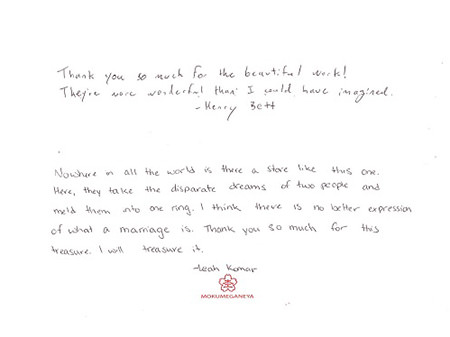 Thank you so much for the beautiful work!
They're more wonderful than I could have imagined.
-Henry Bett
Nowhere in all the world is there a store like this one.
Here, they take the disparate dreams of two people and
meld them into one ring. I think there is no better expression
of what a marriage is. Thank you so much for this
treasure. I will treasure it.
-Leah Kumar
MOKUMEGANEYA